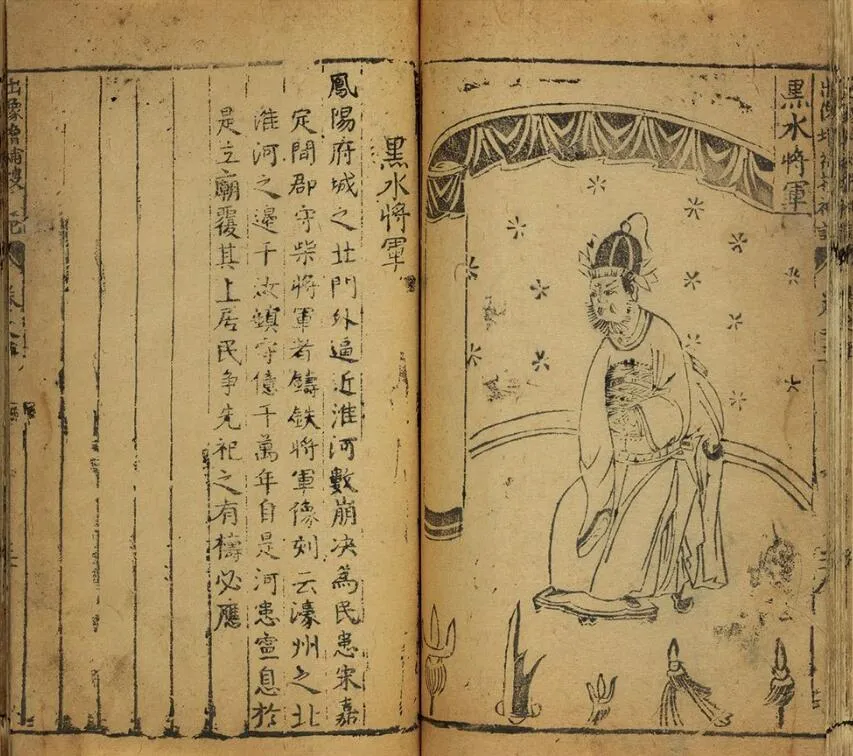 黑水將軍
黑水將軍
鳳陽府城之北門外逼近淮河數崩决爲民患宋嘉
定間郡守柴將軍者鑄鉄將軍像刻云濠州之北
淮河之邊千汝鎮守億千萬年自是河患寍息於
是立廟覆其上居民争先祀之有禱必應